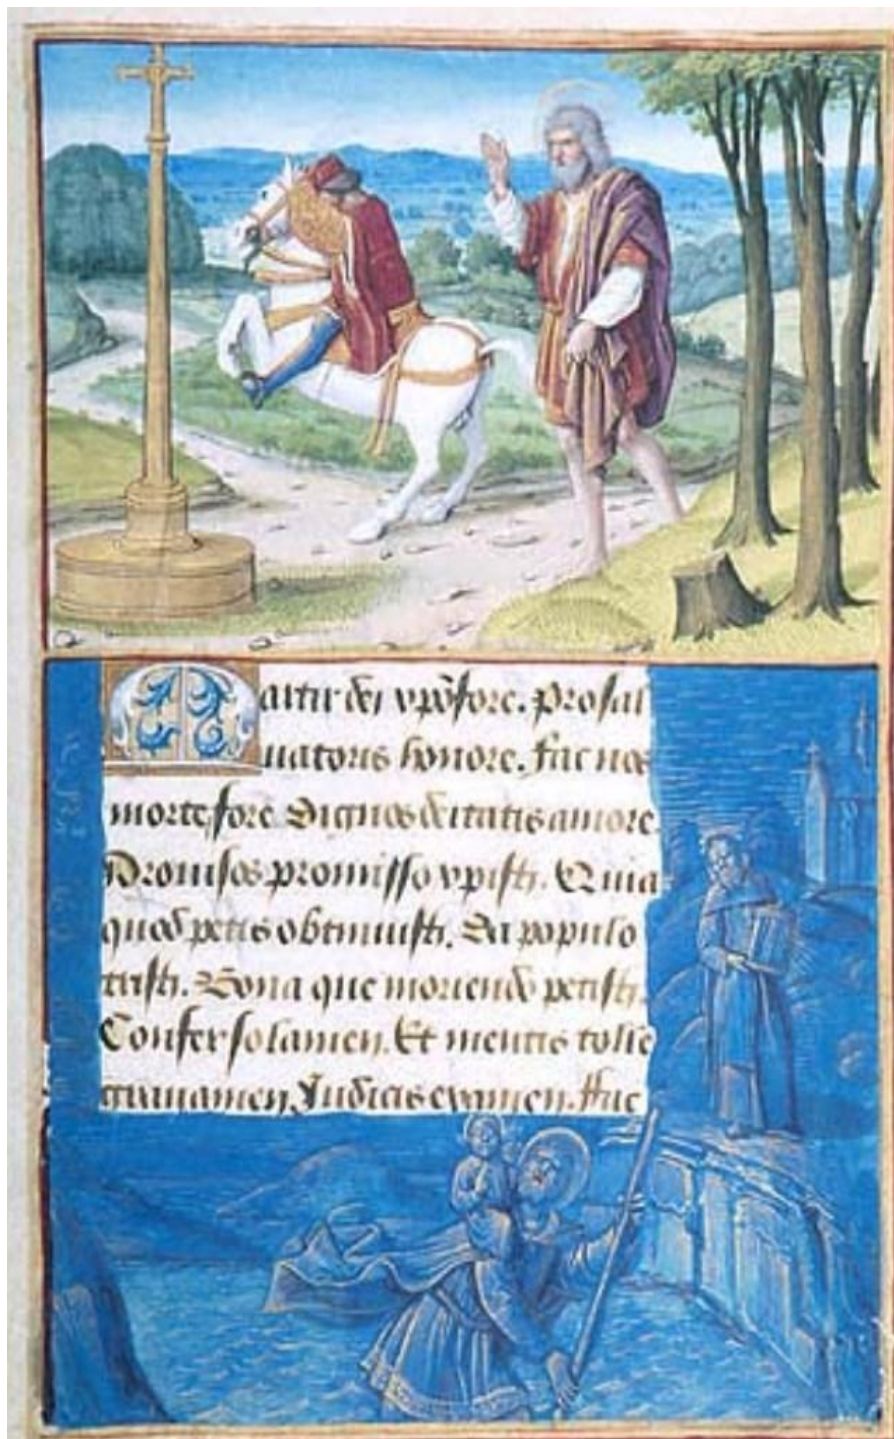 Martir dei xpōfore. Prosal
uatoris honore. fac nos
morte fore Dignos deitatis amore.
Promisos promisso xpisti. Quia
quod petis obtinuisti. Da populo
tristi. Bona que moriendo petisti.
Confer solamen. Et mentis tolle
grauamen, Judicis examen. ffac